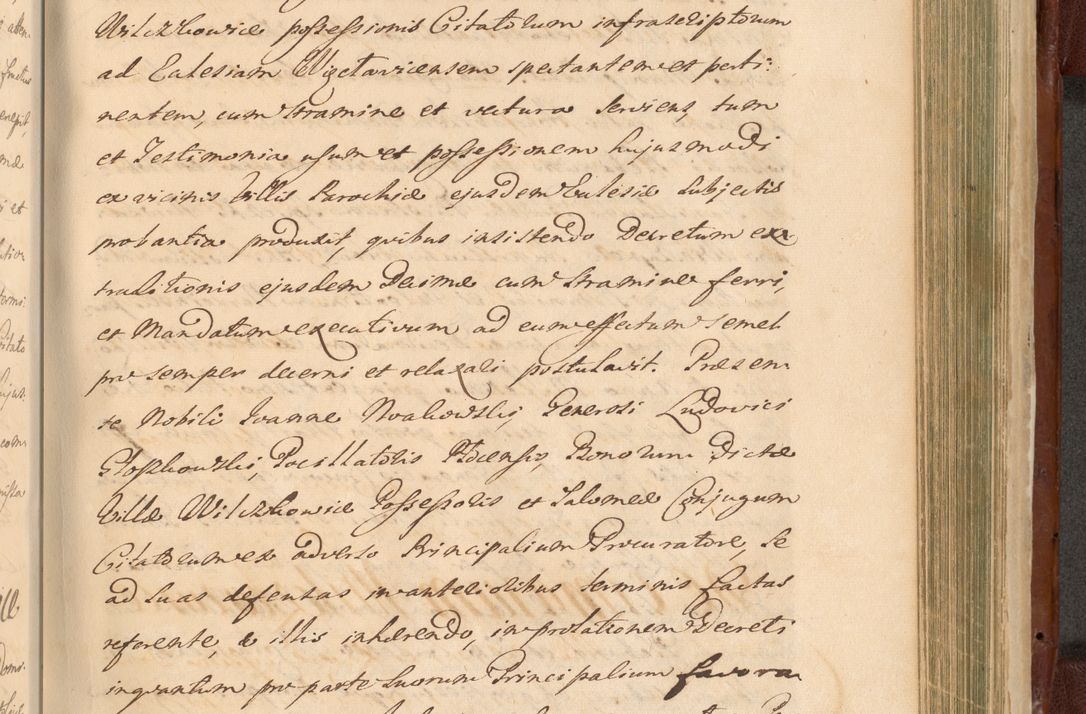 Wilczkowice possessionis Citatorum infrascriptorum
ad Eclesiam Wysctaviensem spectantem et perti:
nentem, cum stramine et vectura serviens, tum
et Testimonia usum et possessionem hujusmodi
ex vicinis Villis Parochiæ ejusdem Eclesiæ subjectis
probantia produxit, quibus insistendo Decretum ex
traditionis ejusdem Decimæ cum stramine ferri,
et Mandatum executivum ad eum effectum semel
pro semper decerni et relaxali postulavit. Præsen
te Nobili Joanne Noakowski, Generosi Ludovici
Głoskowski, Pocillatoris Plocensis, Bonorum Dictæ
Villæ Wilczkowice Possessoris et Salomeæ Conjugum
Citatorum ex adverso Principalium Procuratore, se
ad suas defensas in anterioribus terminis factas
referente, & illis inhærendo, in prolationem Decreti
inquantum pro parte suorum Principalium favora